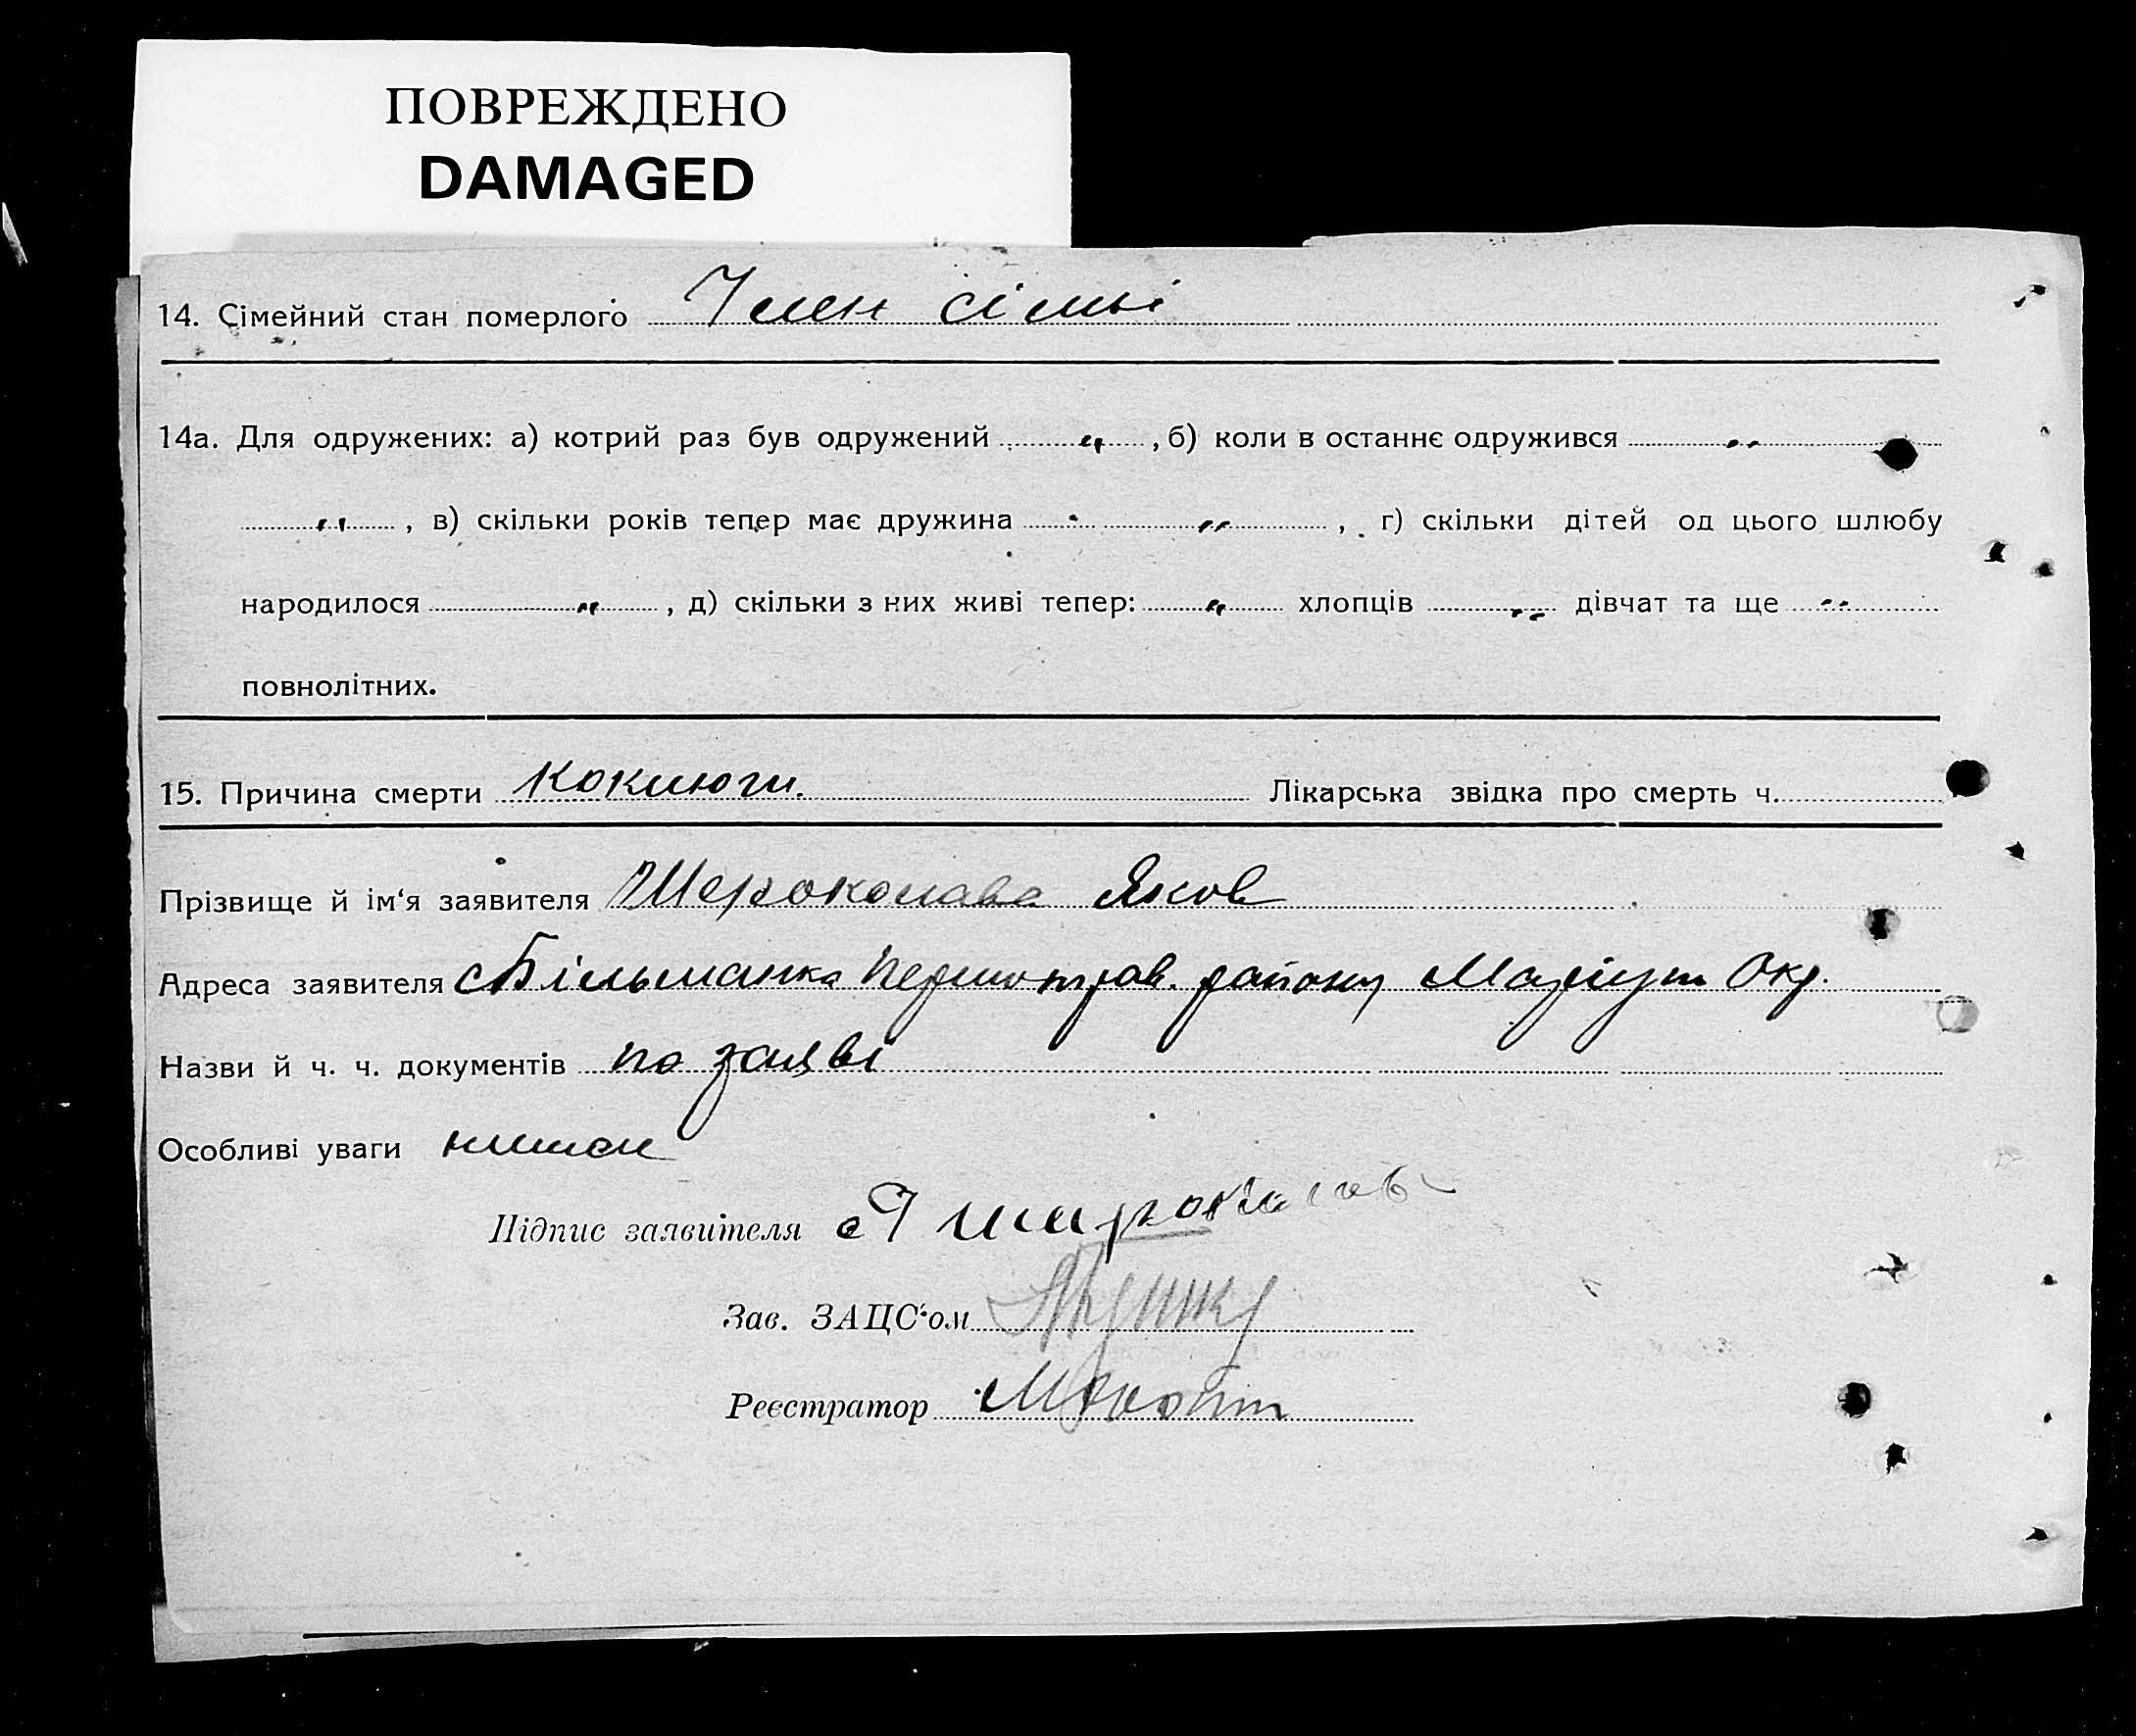 ПОВРЕЖДЕНО
DAMAGED
14. Сімейний стан померлого Член сімьі
14а. Для одружених: а) котрий раз був одружений " , б) коли в останнє одружився "
" , в) скільки років тепер має дружина " , г) скільки дітей од цього шлюбу
народилося " , д) скільки з них живі тепер: " хлопців " дівчат та ще "
повнолітних.
15. Причина смерти Коклюги. Лікарська звідка про смерть ч.
Прізвище й ім'я заявителя Яков
Адреса заявителя с Більманка Першотрав. району Маріуп Окр.
Назви й ч. ч. документів по заяві
Особливі уваги
Підпис заявителя
Зав. ЗАЦС'ом
Реєстратор